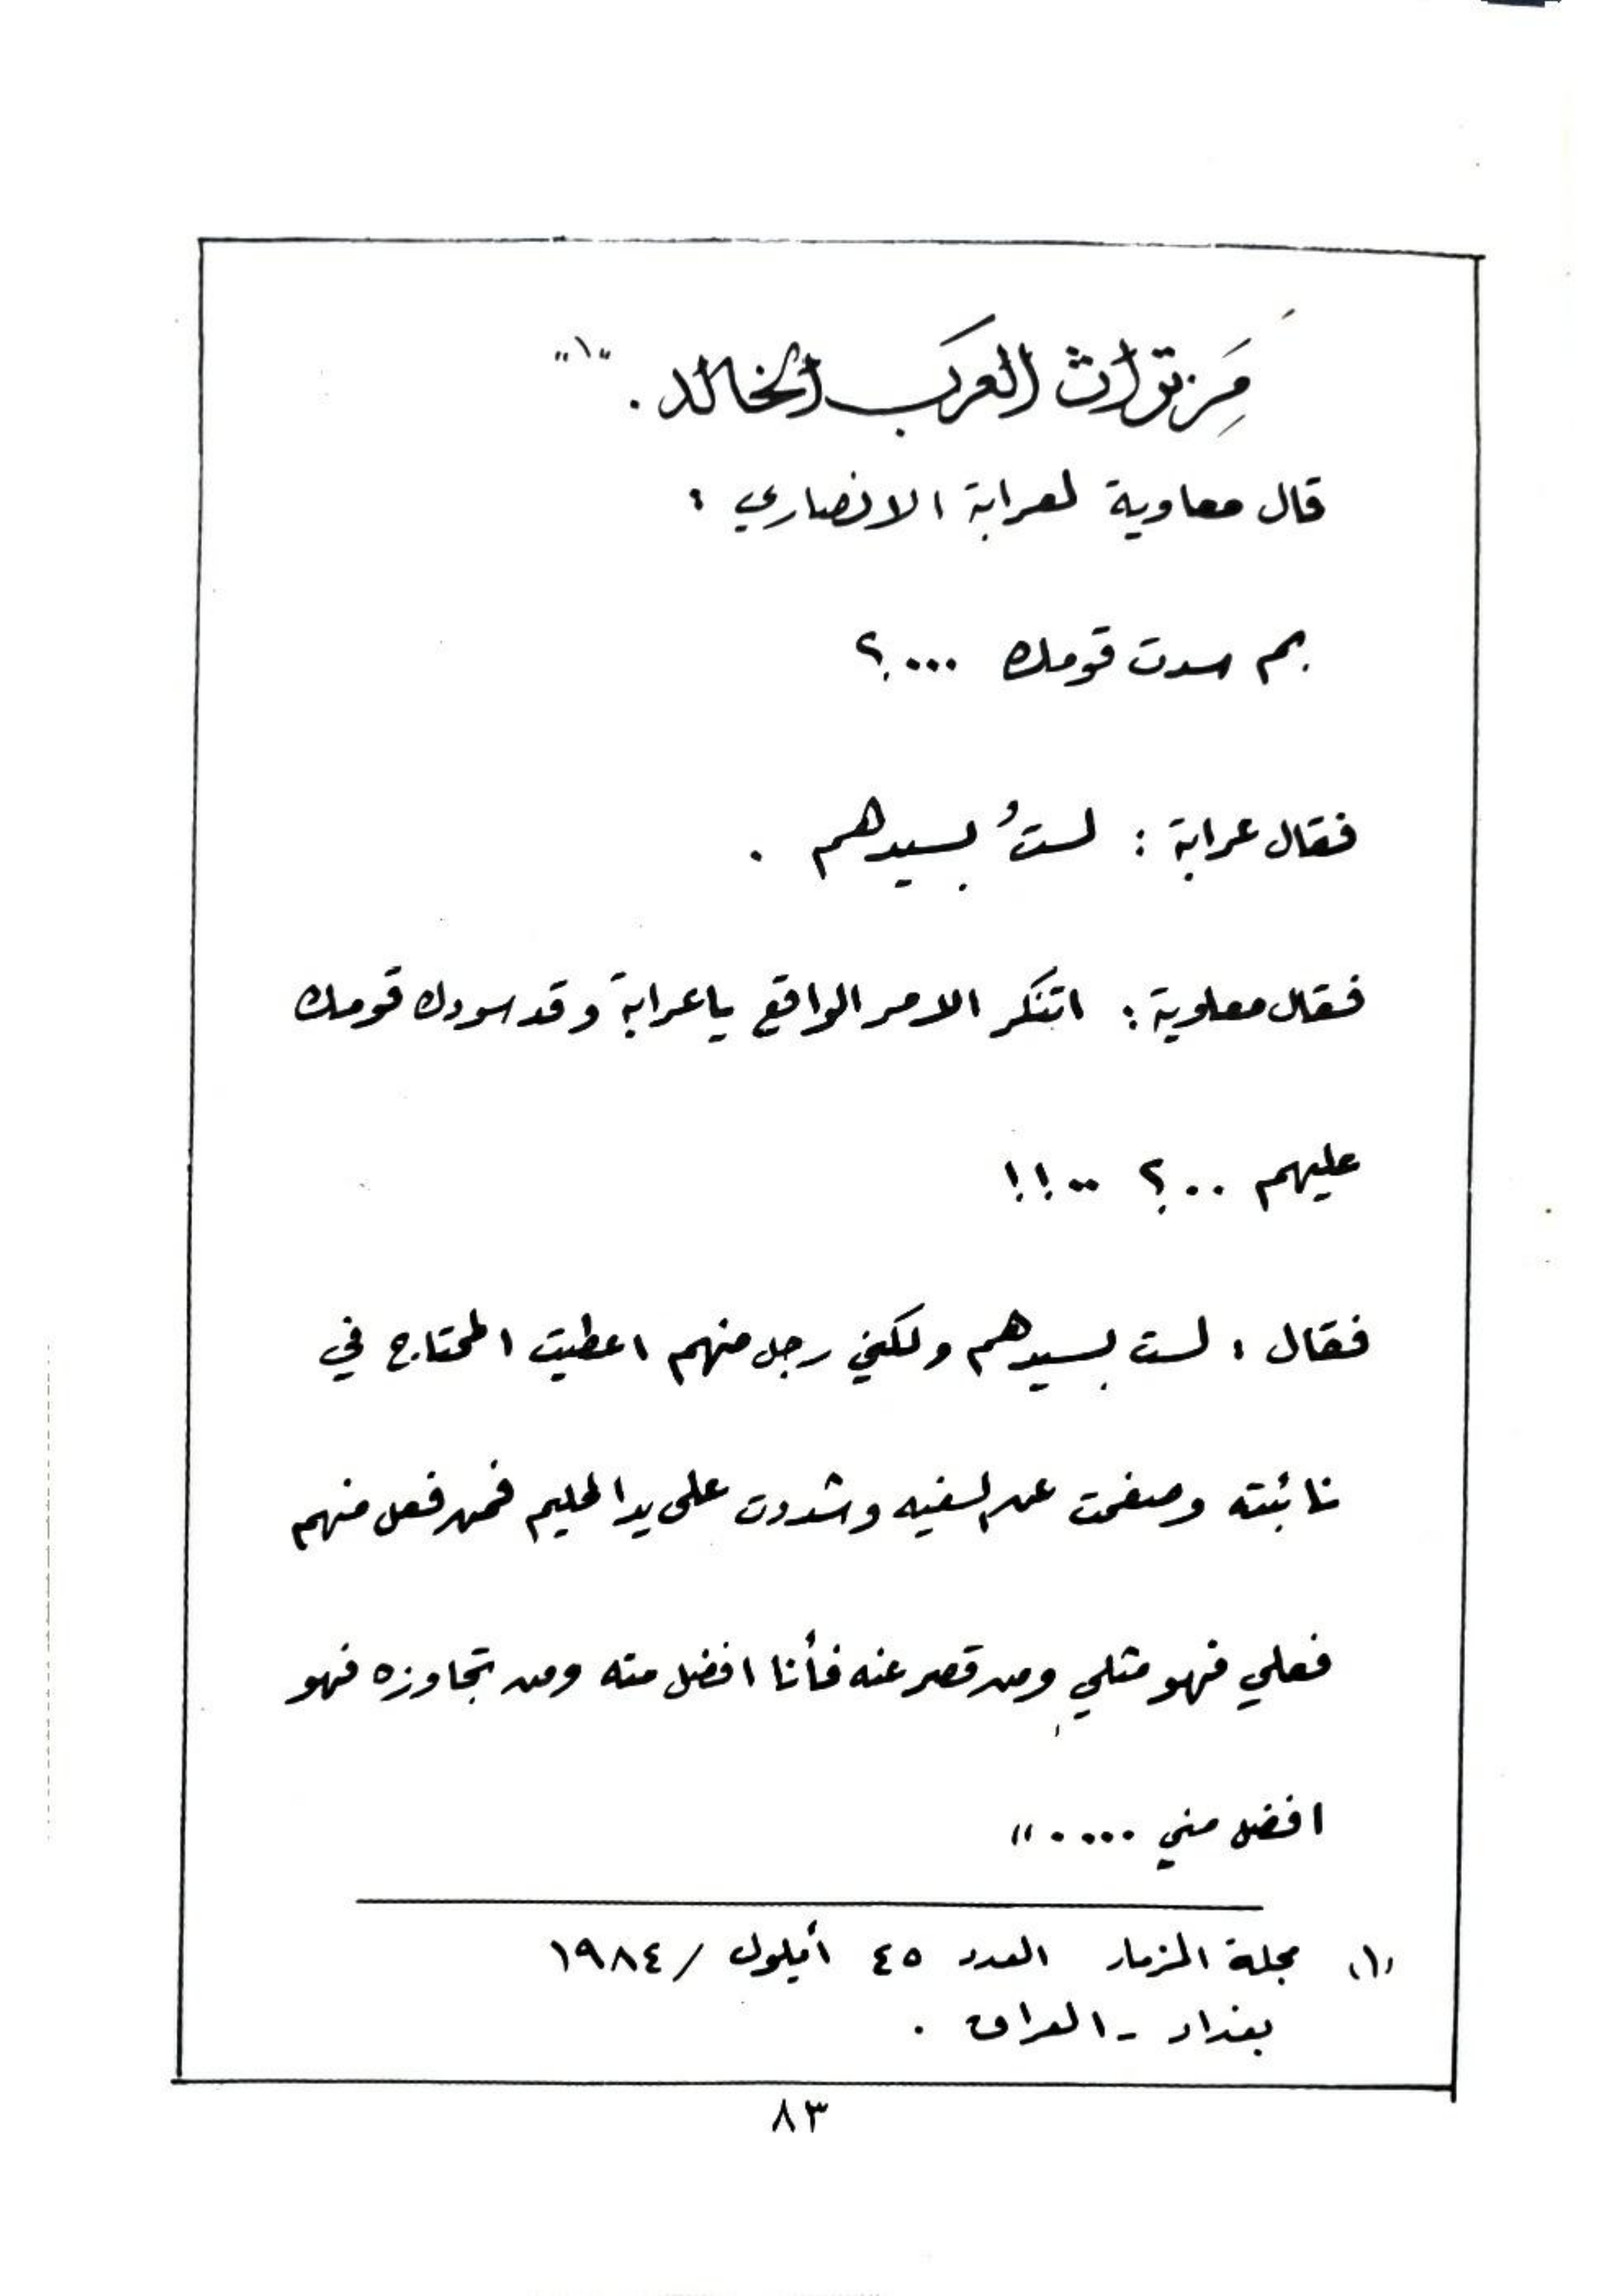 مِن تراث العرب الخالد . "١"
قال معاوية لعرابة الانصاري :
بم سدت قومك ....؟
فقال عرابة : لستُ بسيدهم .
فقال معاوية : اتنكر الامر الواقع ياعرابة وقد سودك قومك
عليهم ..؟ ..!!
فقال : لست بسيدهم ولكني رجل منهم اعطيت المحتاج في
نائبته وصفحت عن السفيه وشددت على يد الحليم فمن فعل منهم
فعلي فهو مثلي ومن قصر عنه فأنا افضل منه ومن تجاوزه فهو
افضل مني ....."
(١) مجلة المزمار العدد ٤٥ أيلول / ١٩٨٤
بغداد - العراق .
٨٣